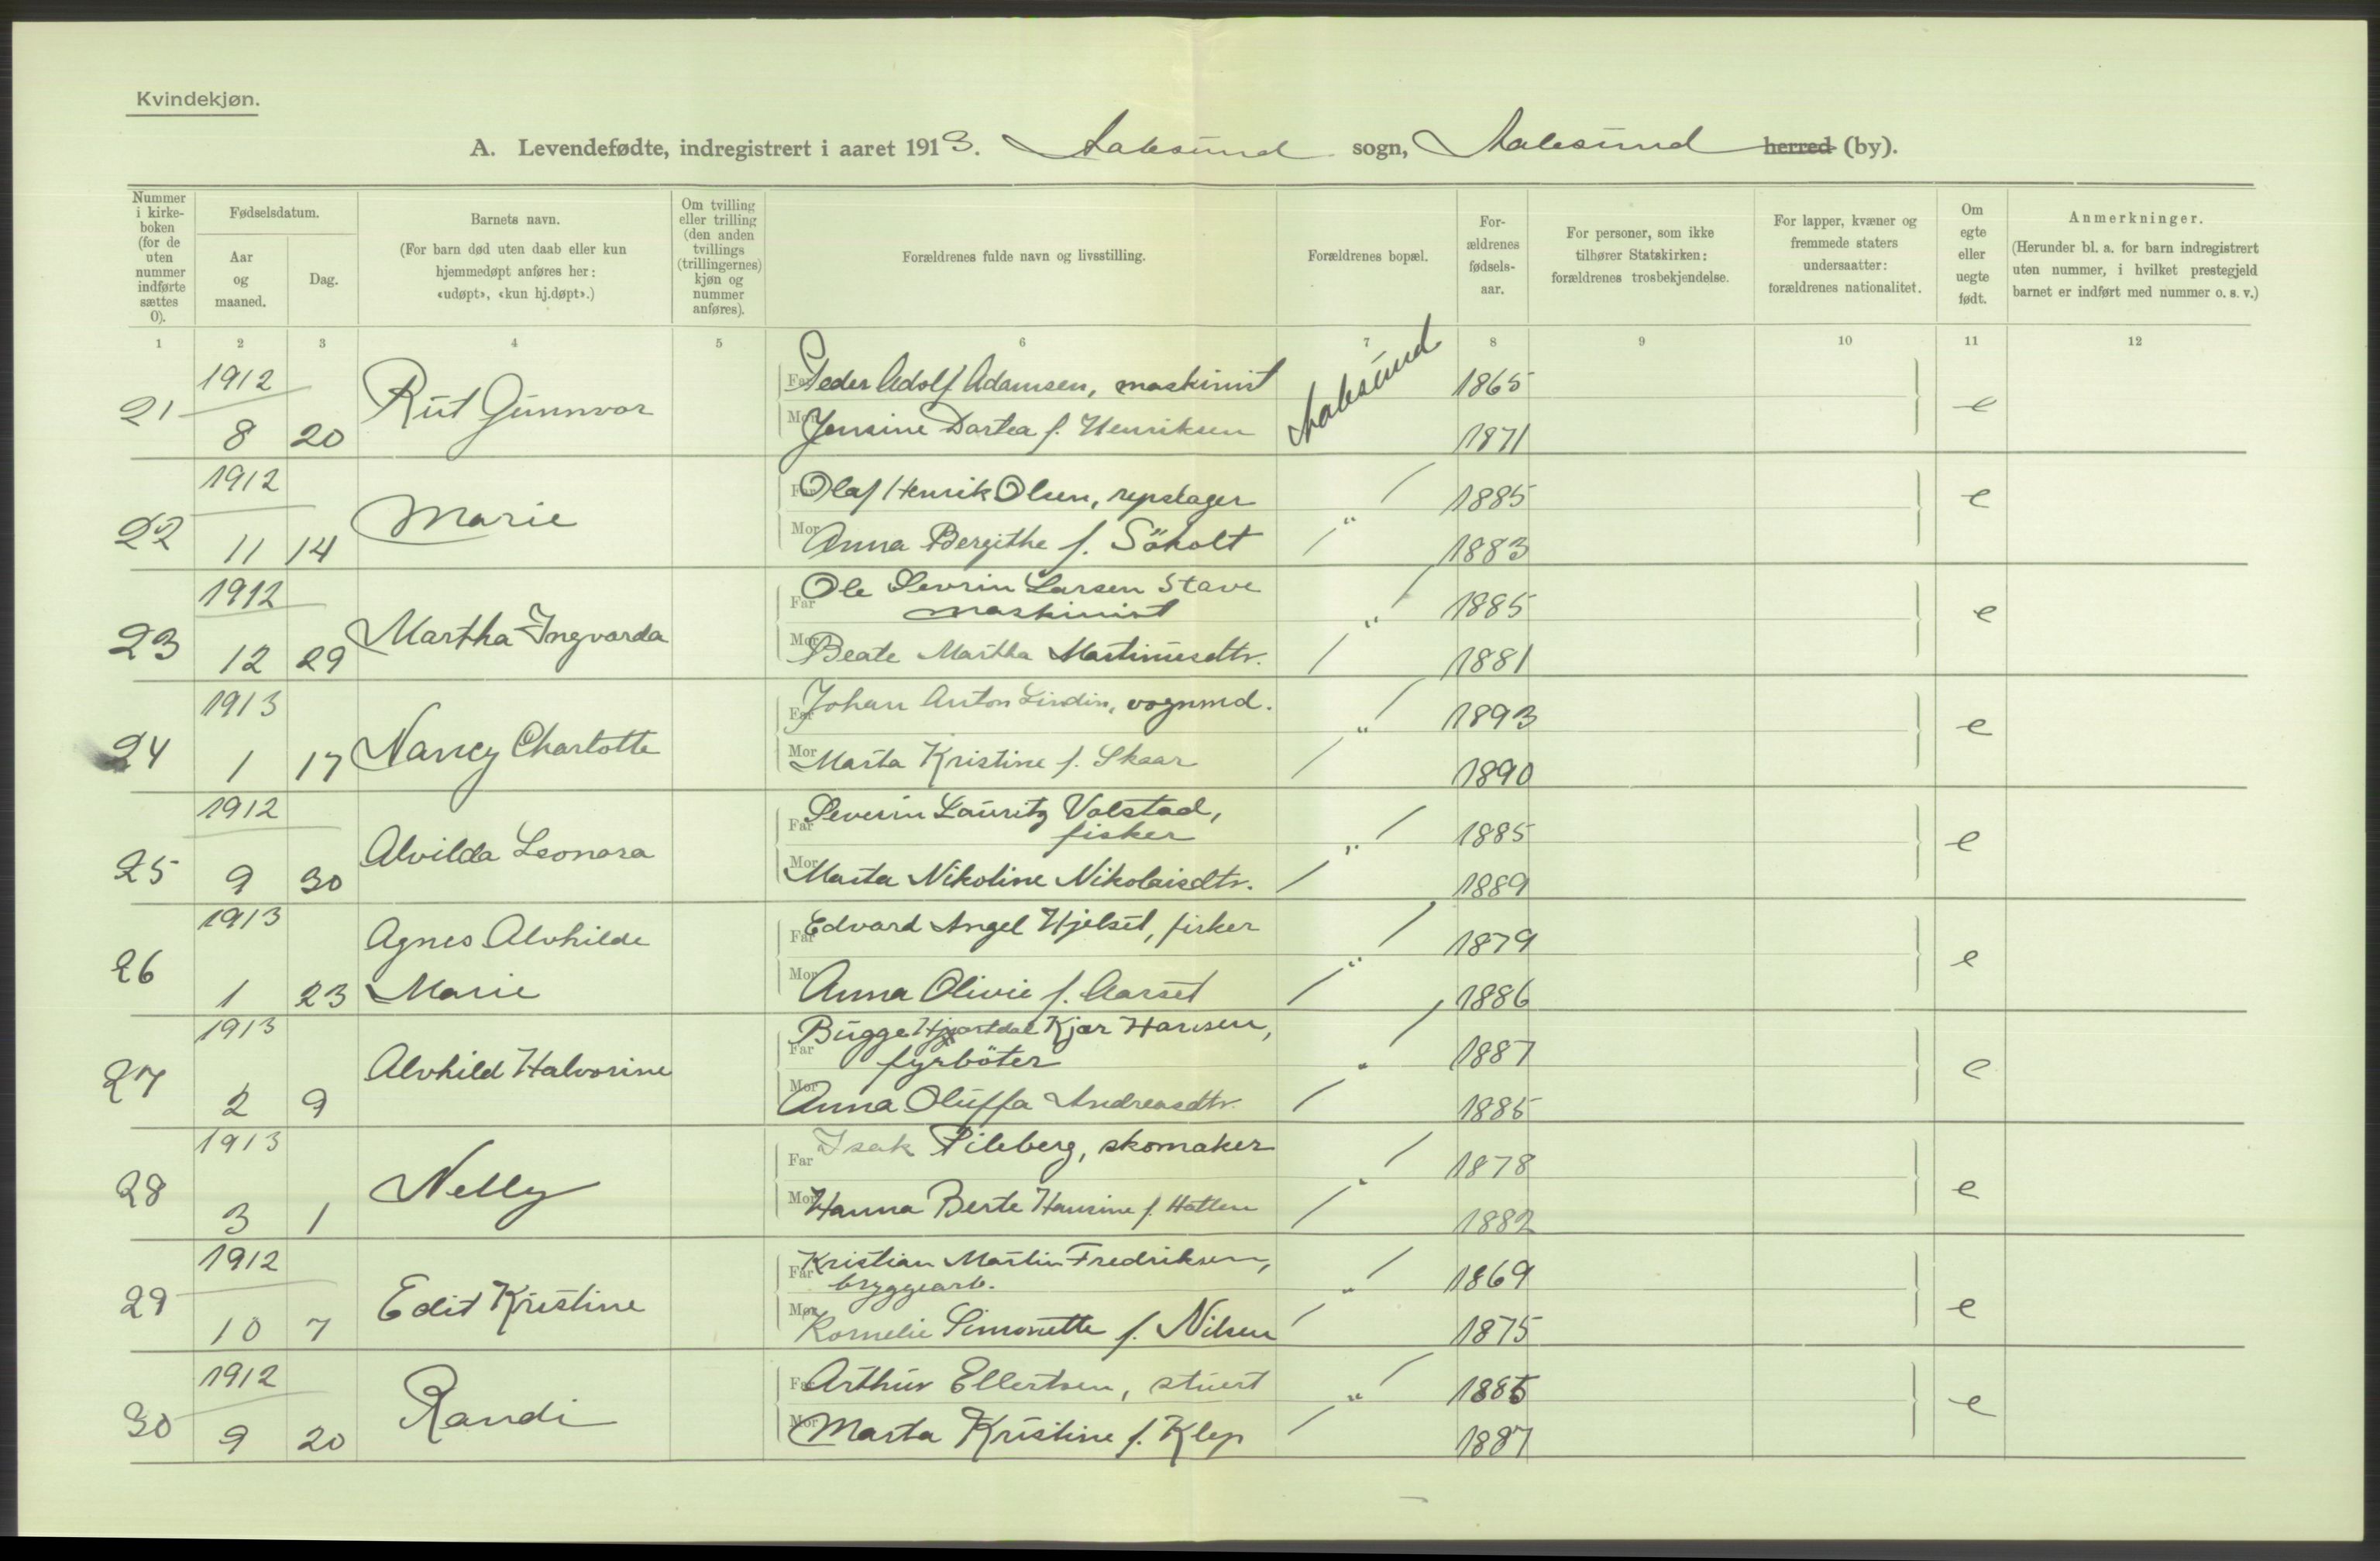 Kvindekjøn.
A. Levendefødte, indregistrert i aaret 1913. Aalesund sogn, Aalesund herred (by).
Nummer i kirke-boken (for de uten nummer indførte sættes 0).
Fødselsdatum.
Aar og maaned.
Dag.
Barnets navn.
(For barn død uten daab eller kun hjemmedøpt anføres her: «udøpt», «kun hj.døpt».)
Om tvilling eller trilling (den anden tvillings (trillingernes) kjøn og nummer anføres).
Forældrenes fulde navn og livsstilling.
Forældrenes bopæl.
For-ældrenes fødsels-aar.
For personer, som ikke tilhører Statskirken: forældrenes trosbekjendelse.
For lapper, kvæner og fremmede staters undersaatter: forældrenes nationalitet.
Om egte eller uegte født.
Anmerkninger.
(Herunder bl. a. for barn indregistrert uten nummer, i hvilket prestegjeld barnet er indført med nummer o. s. v.)
1 2 3 4 5 6 7 8 9 10 11 12
1912 Far Peder Adolf Adamsen, maskinist Aalesund 1865
21 8 20 Rut Gunnvor Mor Jensine Dortea f. Henriksen 1871 e
1912 Far Olaf Henrik Olsen, repslager 1885
22 11 14 Marie Mor Anna Bergithe f. Söholt " 1883 e
1912 Far Ole Sevrin Larsen Stave maskinist 1885
23 12 29 Martha Ingvarda Mor Beate Martha Martinusdtr. " 1881 e
1913 Far Johan Anton Lindin, vognmd. 1893
24 1 17 Nancy Charlotte Mor Marta Kristine f. Skaar " 1890 e
1912 Far Severin Lauritz Valstad, fisker 1885
25 9 30 Alvilda Leonora Mor Marta Nikoline Nikolaisdtr. " 1889 e
1913 Far Edvard Angel Hjelset, fisker 1879
26 1 23 Agnes Alvhilde Marie Mor Anna Olivie f. Aarset " 1886 e
1913 Far Bugge Hjortdal Kjær Hansen, fyrböter 1887
27 2 9 Alvhild Halvorine Mor Anna Oluffa Andreasdtr. " 1885 e
1913 Far Isak Pileberg, skomaker 1878
28 3 1 Nelly Mor Hanna Berte Hansine f. Hatten " 1882 e
1912 Far Kristian Martin Fredriksen, bryggearb. 1869
29 10 7 Edit Kristine Mor Kornelie Simonette f. Nilsen " 1875 e
1912 Far Arthur Ellertsen, stuert 1885
30 9 20 Randi Mor Marta Kristine f. Klep " 1887 e